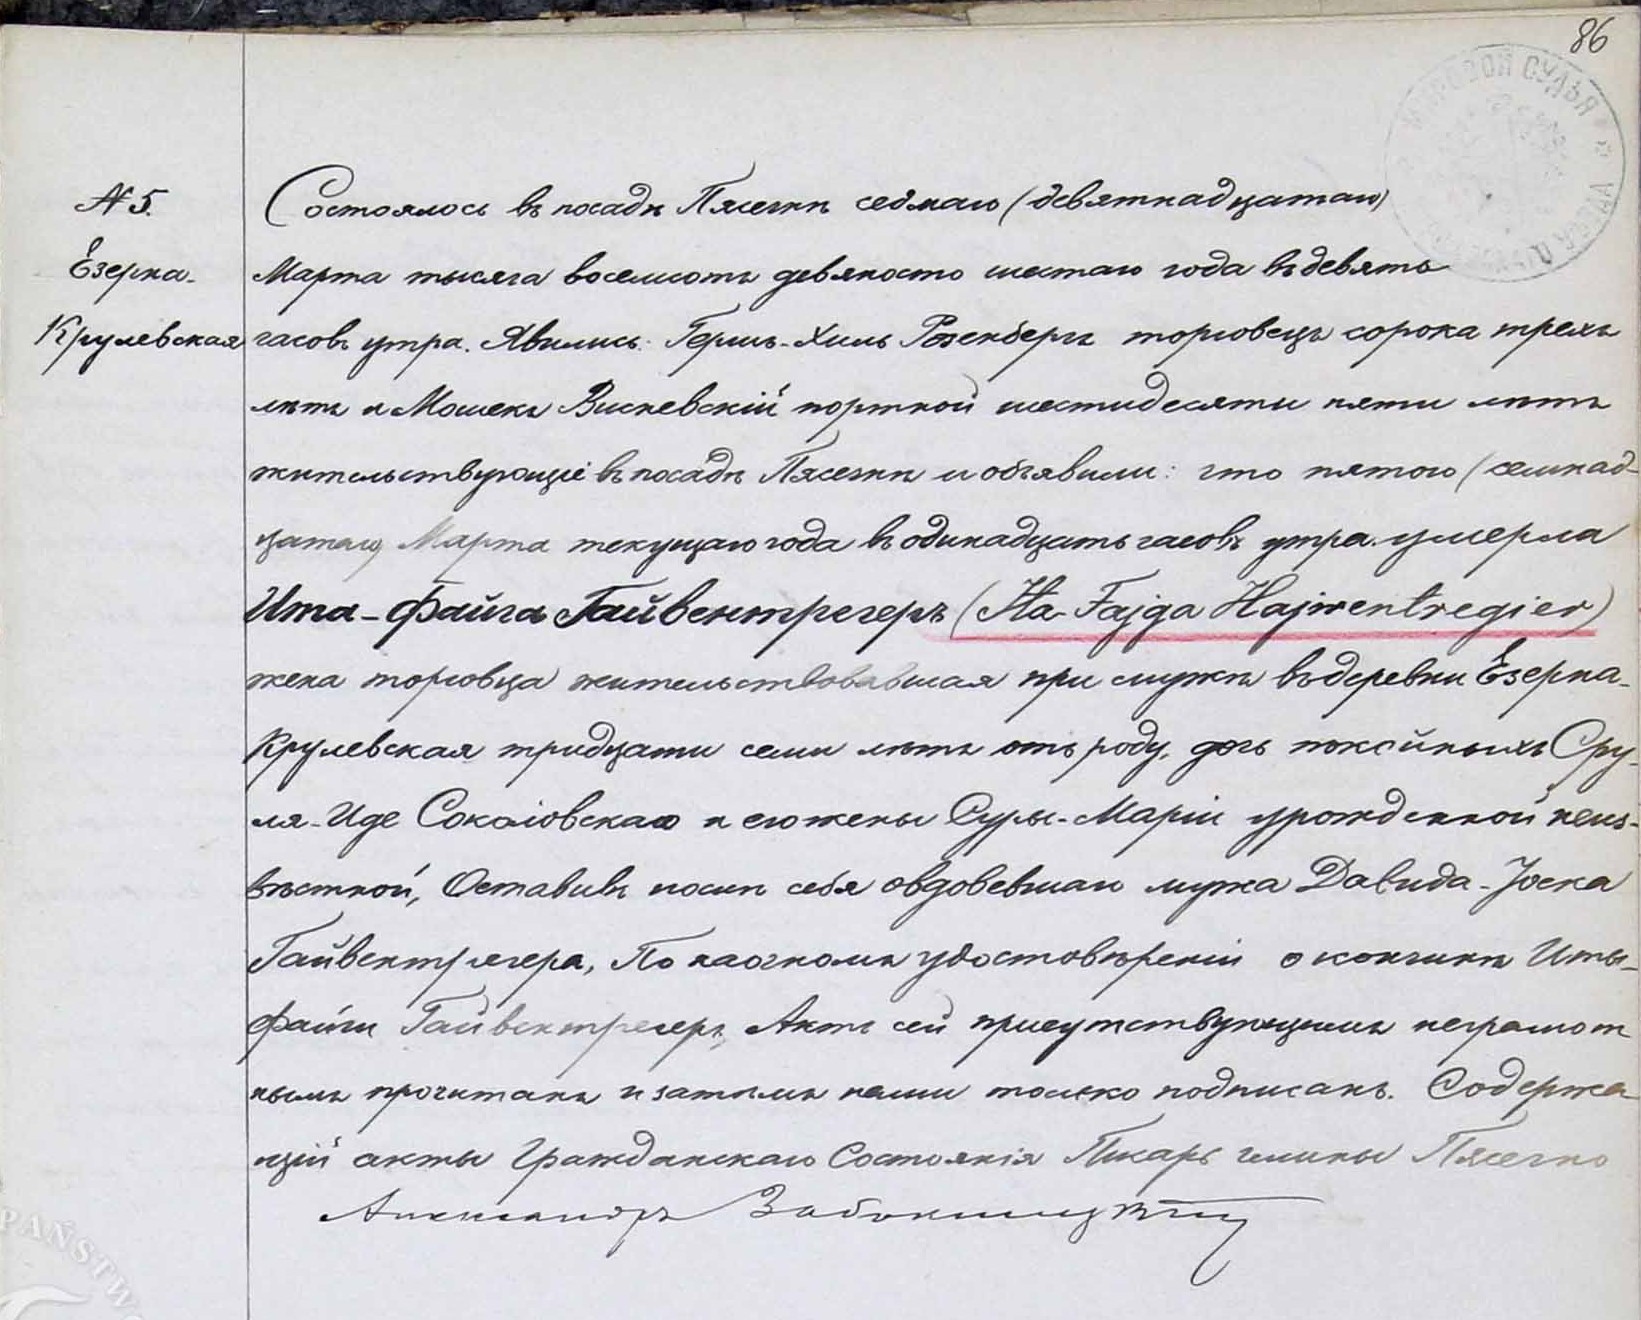 86
МИРОВОЙ СУДЬЯ
№ 5.
Езерка-
Крулевская
Состоялось въ посадѣ Пясечнѣ седмаго (девятнадцатаго)
Марта тысяча восемьсотъ девяносто шестаго года въ девять
часовъ утра. Явились: Гершъ-Хиль Розенбергъ торговецъ сорока трехъ
лѣтъ и Мошекъ Висневскій портной шестидесяти пяти лѣтъ
жительствующіе въ посадѣ Пясечнѣ и объявили: что пятого (семнад-
цатаго) Марта текущаго года въ одинадцать часовъ утра умерла
Ита-Файга Гайвентрегеръ (Ita-Fajga Hajwentregier)
жена торговца жительствовавшая при мужѣ въ деревни Езерка-
Крулевская тридцати семи лѣтъ отъ роду, дочь покойныхъ Сру-
ля-Иде Соколовскаго и его жены Суры-Маріи урожденной неиз-
вѣстной, Оставивъ послѣ себя овдовевшаго мужа Давида-Іоска
Гайвентрегера, По наочномъ удостовѣреніи о кончинѣ Иты-
Файги Гайвентрегеръ, Актъ сей присутствующимъ неграмот
нымъ прочитанъ и затѣмъ нами только подписанъ. Содержа
щій акты Гражданскаго Состоянія Писарь гмины Пясечно
Александръ
PAŃSTW